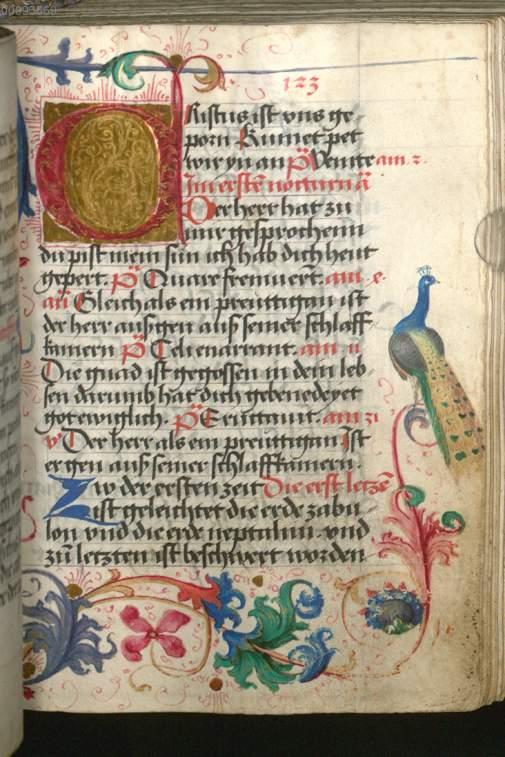 00093569
123
Kristus ist vns ge
porn Kumet pet
wir yn an p̃s Venite am 2
Im ersten nocturn ā
Der herr hat zu
mir gesprochenn
du pist mein sun ich hab dich heut
gepert. p̃s Quare fremuert. am e
añ Gleich als ein preuttigan ist
der herr ausgen auß seiner schlaff
kamern p̃s Celi enarrant. am ii
Die gnad ist gegossen in dein leb
sen darumb hat dich gebenedeyet
got ewiglich. p̃s Eructauit. am xi
v̾ Der herr als ein preuttigan Ist
er gen auß seiner schlaffkamern.
Zw der ersten zeit Die erst letzē
ist geleichtet die erde zabu
lon vnd die erde neptalim. vnd
zu letzten ist beschwert worden